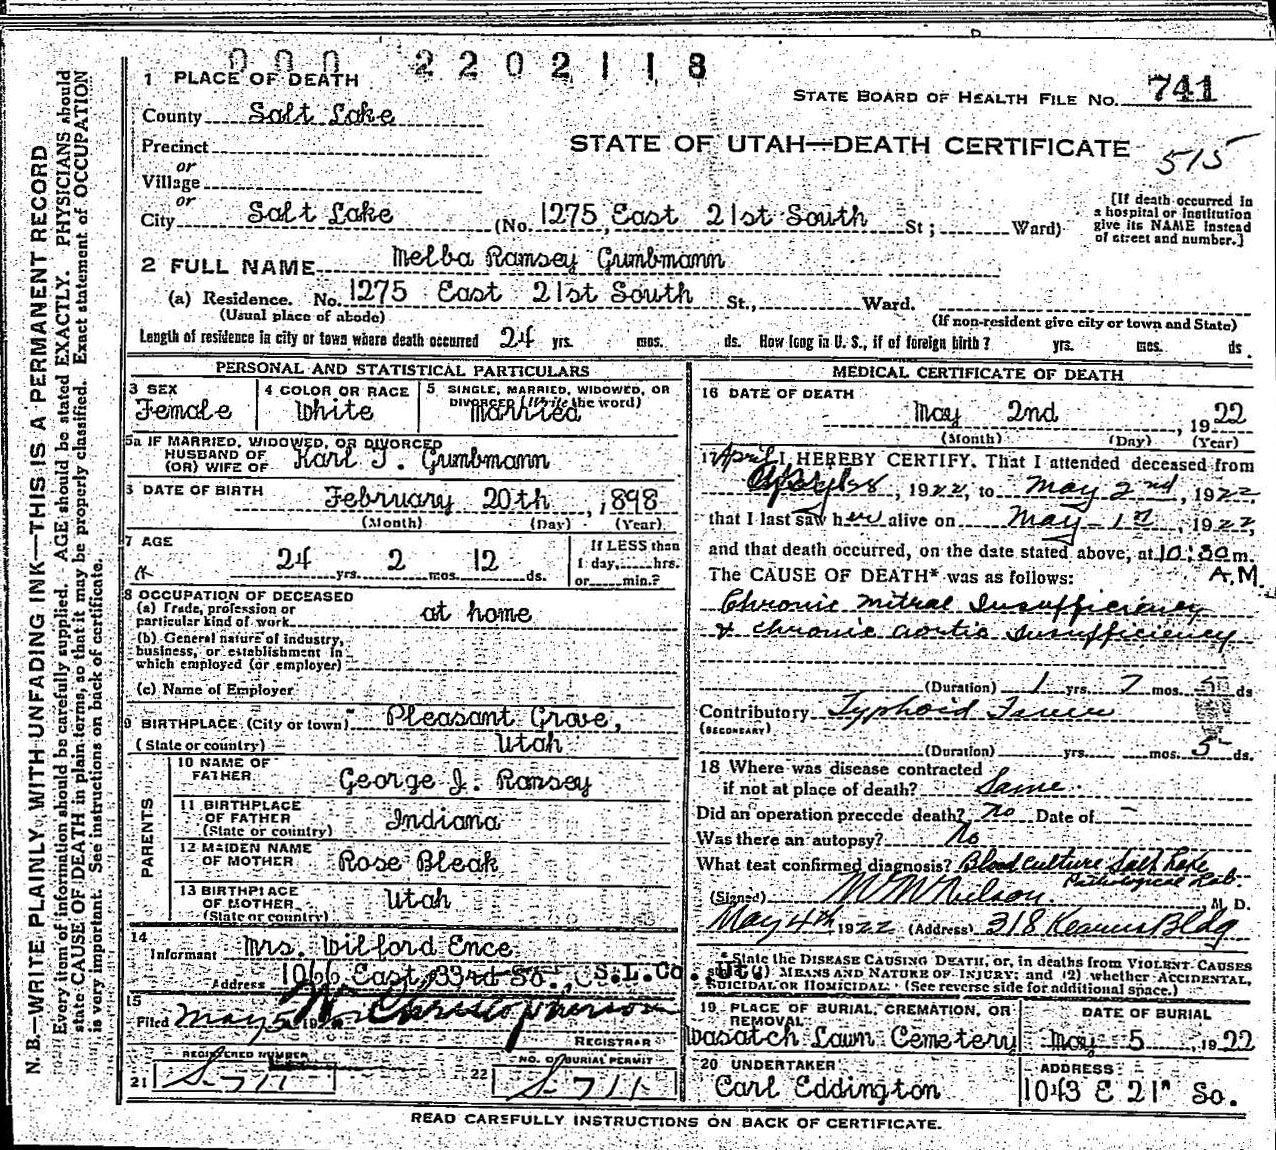 000 2202118
1 PLACE OF DEATH
STATE BOARD OF HEALTH FILE NO. 741
County Salt Lake
STATE OF UTAH—DEATH CERTIFICATE
515
Precinct
or
Village
or
City Salt Lake (No. 1275, East 21st South St; Ward)
[If death occurred in
a hospital or institution
give its NAME instead
of street and number.]
2 FULL NAME Melba Ramsey Gumbmann
(a) Residence. No. 1275 East 21st South St., Ward.
(Usual place of abode) (If non-resident give city or town and State)
Length of residence in city or town where death occurred 24 yrs. mos. ds. How long in U. S., if of foreign birth? yrs. mos. ds.
PERSONAL AND STATISTICAL PARTICULARS
3 SEX
Female
4 COLOR OR RACE
White
5 SINGLE, MARRIED, WIDOWED, OR
DIVORCED (Write the word)
Married
5a IF MARRIED, WIDOWED, OR DIVORCED
HUSBAND OF
(OR) WIFE OF Karl J. Gumbmann
6 DATE OF BIRTH February 20th, 1898
(Month) (Day) (Year)
7 AGE
24 yrs. 2 mos. 12 ds.
If LESS than
1 day, hrs.
or min.?
8 OCCUPATION OF DECEASED
(a) Trade, profession or
particular kind of work at home
(b) General nature of industry,
business, or establishment in
which employed (or employer)
(c) Name of Employer
9 BIRTHPLACE (City or town) Pleasant Grove,
(State or country) Utah
PARENTS
10 NAME OF
FATHER George J. Ramsey
11 BIRTHPLACE
OF FATHER
(State or country) Indiana
12 MAIDEN NAME
OF MOTHER Rose Bleak
13 BIRTHPLACE
OF MOTHER
(State or country) Utah
14
Informant Mrs. Wilford Ence
Address 1066 East, 33rd So., S.L.Co. Ut.
15
Filed May 5 192 Christopherson
REGISTRAR
REGISTERED NUMBER
21 S-711
NO. OF BURIAL PERMIT
22 S-711
MEDICAL CERTIFICATE OF DEATH
16 DATE OF DEATH
May 2nd, 1922
(Month) (Day) (Year)
17 April I HEREBY CERTIFY, That I attended deceased from
28, 1922, to May 2nd, 1922
that I last saw her alive on May 1st, 1922,
and that death occurred, on the date stated above, at 10:30 m.
A.M.
The CAUSE OF DEATH* was as follows:
Chronic Mitral Insufficiency
& chronic aortic insufficiency
(Duration) 1 yrs. 7 mos. 5 ds
Contributory Typhoid Fever
(SECONDARY)
(Duration) yrs. mos. 5 ds.
18 Where was disease contracted
if not at place of death? Same.
Did an operation precede death? No Date of –
Was there an autopsy? No
What test confirmed diagnosis? Blood culture Salt Lake
Pathological Lab.
(Signed) W M Nielson, M. D.
May 4th 1922 (Address) 318 Kearns Bldg
* State the DISEASE CAUSING DEATH, or, in deaths from VIOLENT CAUSES
state (1) MEANS AND NATURE OF INJURY; and (2) whether ACCIDENTAL,
SUICIDAL OR HOMICIDAL. (See reverse side for additional space.)
19 PLACE OF BURIAL, CREMATION, OR
REMOVAL
Wasatch Lawn Cemetery
DATE OF BURIAL
May 5, 1922
20 UNDERTAKER
Carl Eddington
ADDRESS
1043 E 21" So.
READ CAREFULLY INSTRUCTIONS ON BACK OF CERTIFICATE.
N. B.—WRITE PLAINLY, WITH UNFADING INK—THIS IS A PERMANENT RECORD
Every item of information should be carefully supplied. AGE should be stated EXACTLY. PHYSICIANS should
state CAUSE OF DEATH in plain terms, so that it may be properly classified. Exact statement of OCCUPATION
is very important. See instructions on back of certificate.